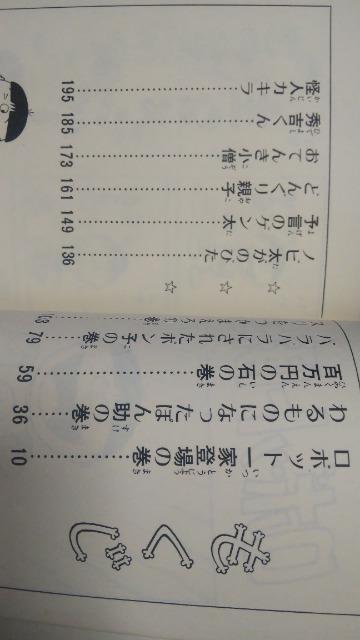 もくじ
ロボット一家登場の巻……10
わるものになったぽん助の巻……36
百万円の石の巻……59
バラバラにされたポン子の巻……79
☆ ☆ ☆
ノビ太がのびた……136
予言のゲン太……149
どんぐり親子……161
おてんき小僧……173
秀吉くん……185
怪人カキラ……195